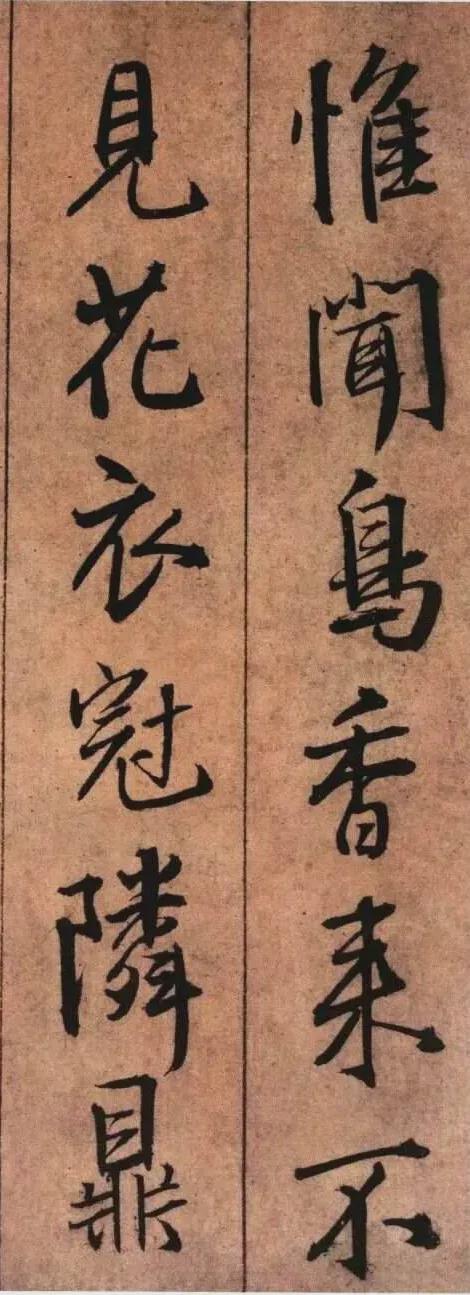 惟聞鳥香来不
見花衣冠隣鼎